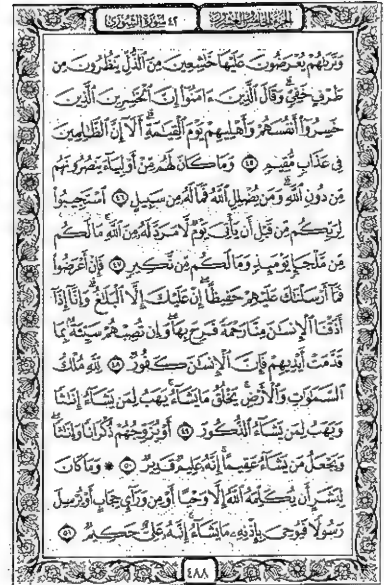 الجزء الخامس والعشرون ٤٢ سورة الشورى
وَتَرَىٰهُمْ يُعْرَضُونَ عَلَيْهَا خَٰشِعِينَ مِنَ ٱلذُّلِّ يَنظُرُونَ مِن
طَرْفٍ خَفِيٍّ ۗ وَقَالَ ٱلَّذِينَ ءَامَنُوٓا۟ إِنَّ ٱلْخَٰسِرِينَ ٱلَّذِينَ
خَسِرُوٓا۟ أَنفُسَهُمْ وَأَهْلِيهِمْ يَوْمَ ٱلْقِيَٰمَةِ ۗ أَلَآ إِنَّ ٱلظَّٰلِمِينَ
فِى عَذَابٍ مُّقِيمٍ ٤٥ وَمَا كَانَ لَهُم مِّنْ أَوْلِيَآءَ يَنصُرُونَهُم
مِّن دُونِ ٱللَّهِ ۗ وَمَن يُضْلِلِ ٱللَّهُ فَمَا لَهُۥ مِن سَبِيلٍ ٤٦ ٱسْتَجِيبُوا۟
لِرَبِّكُم مِّن قَبْلِ أَن يَأْتِىَ يَوْمٌ لَّا مَرَدَّ لَهُۥ مِنَ ٱللَّهِ ۚ مَا لَكُم
مِّن مَّلْجَإٍ يَوْمَئِذٍ وَمَا لَكُم مِّن نَّكِيرٍ ٤٧ فَإِنْ أَعْرَضُوا۟
فَمَآ أَرْسَلْنَٰكَ عَلَيْهِمْ حَفِيظًا ۖ إِنْ عَلَيْكَ إِلَّا ٱلْبَلَٰغُ ۗ وَإِنَّآ إِذَآ
أَذَقْنَا ٱلْإِنسَٰنَ مِنَّا رَحْمَةً فَرِحَ بِهَا ۖ وَإِن تُصِبْهُمْ سَيِّئَةٌۢ بِمَا
قَدَّمَتْ أَيْدِيهِمْ فَإِنَّ ٱلْإِنسَٰنَ كَفُورٌ ٤٨ لِّلَّهِ مُلْكُ
ٱلسَّمَٰوَٰتِ وَٱلْأَرْضِ ۚ يَخْلُقُ مَا يَشَآءُ ۚ يَهَبُ لِمَن يَشَآءُ إِنَٰثًا
وَيَهَبُ لِمَن يَشَآءُ ٱلذُّكُورَ ٤٩ أَوْ يُزَوِّجُهُمْ ذُكْرَانًا وَإِنَٰثًا ۖ
وَيَجْعَلُ مَن يَشَآءُ عَقِيمًا ۚ إِنَّهُۥ عَلِيمٌ قَدِيرٌ ٥٠ ۞ وَمَا كَانَ
لِبَشَرٍ أَن يُكَلِّمَهُ ٱللَّهُ إِلَّا وَحْيًا أَوْ مِن وَرَآئِ حِجَابٍ أَوْ يُرْسِلَ
رَسُولًا فَيُوحِىَ بِإِذْنِهِۦ مَا يَشَآءُ ۚ إِنَّهُۥ عَلِىٌّ حَكِيمٌ ٥١
٤٨٨